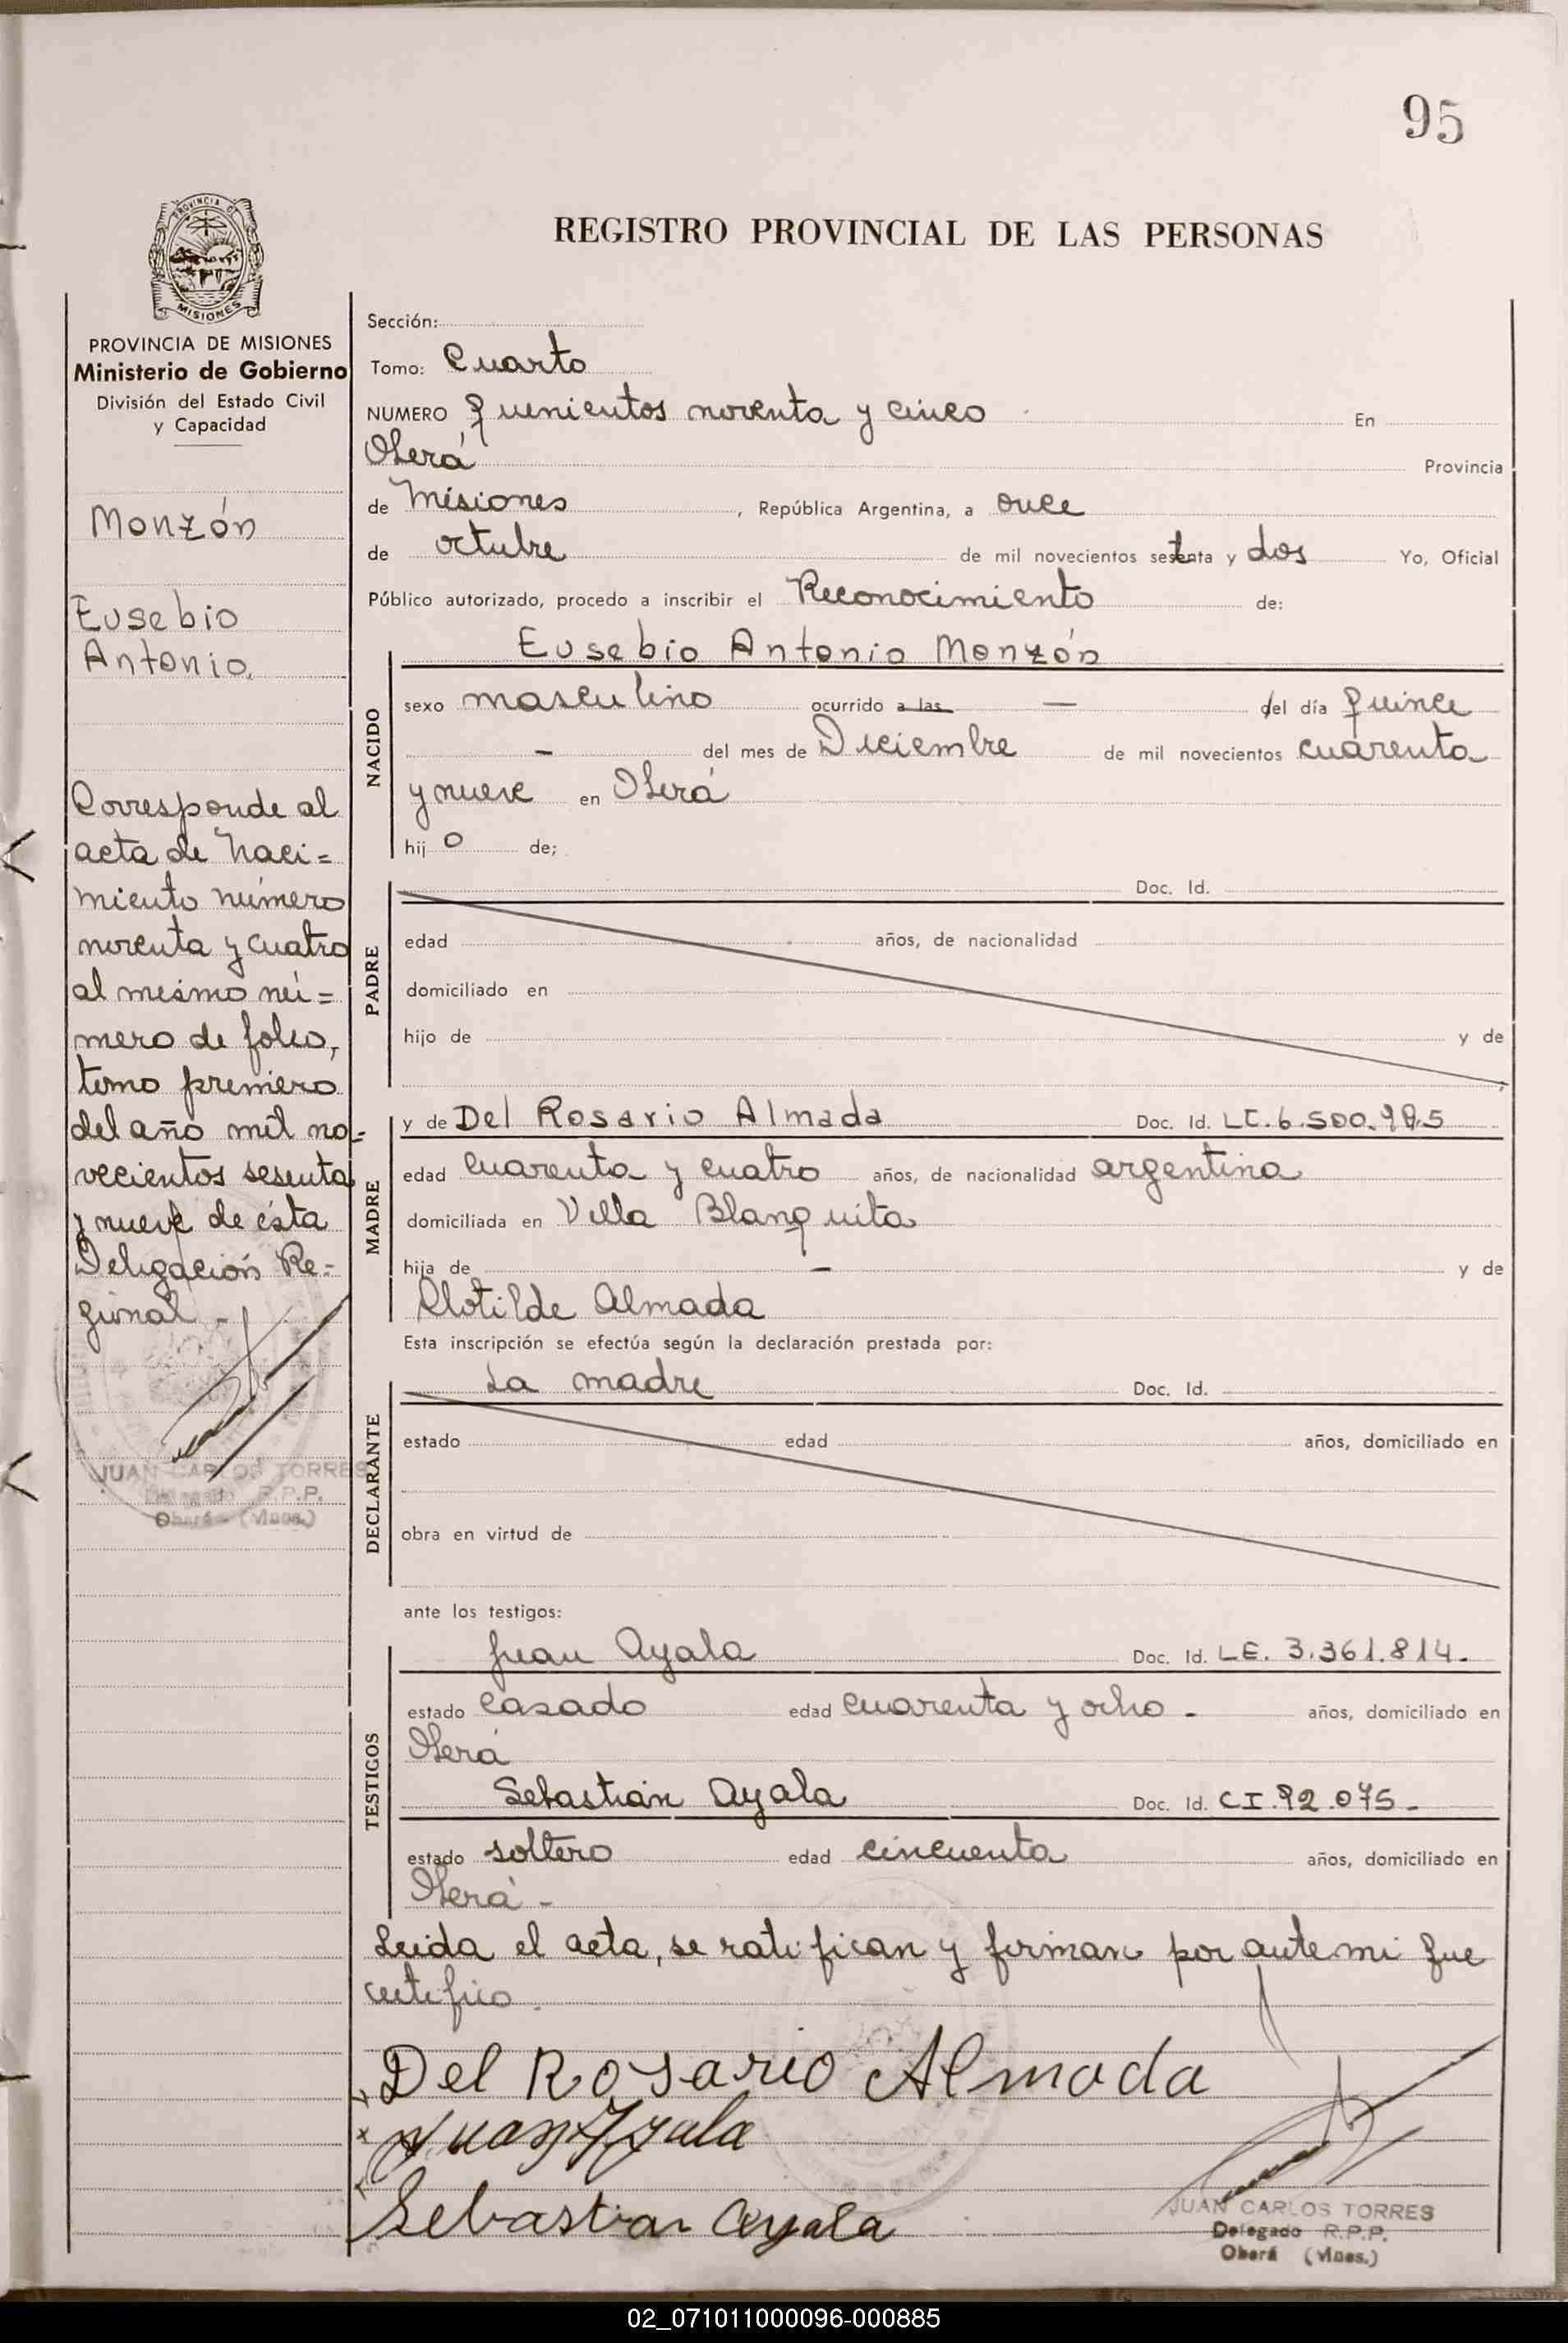 95
PROVINCIA DE
MISIONES
REGISTRO PROVINCIAL DE LAS PERSONAS
PROVINCIA DE MISIONES
Ministerio de Gobierno
División del Estado Civil
y Capacidad
Monzón
Eusebio
Antonio.
Corresponde al
acta de naci=
miento número
noventa y cuatro
al mismo nú=
mero de folio,
tomo primero
del año mil no=
vecientos sesenta
y nueve de ésta
Delegación Re=
gional -
JUAN CARLOS TORRES
Delegado R.P.P.
Oberá - (Mnes.)
Sección:
Tomo: Cuarto
NUMERO quinientos noventa y cinco En
Oberá Provincia
de Misiones , República Argentina, a once
de octubre de mil novecientos setenta y dos Yo, Oficial
Público autorizado, procedo a inscribir el Reconocimiento de:
Eusebio Antonio Monzón
NACIDO
sexo masculino ocurrido a las — del día quince
- del mes de Diciembre de mil novecientos cuarenta
y nueve en Oberá
hij o de;
PADRE
Doc. Id.
edad años, de nacionalidad
domiciliado en
hijo de y de
MADRE
y de Del Rosario Almada Doc. Id. LC. 6.500.985
edad cuarenta y cuatro años, de nacionalidad argentina
domiciliada en Villa Blanquita
hija de - y de
Clotilde Almada
Esta inscripción se efectúa según la declaración prestada por:
DECLARANTE
La madre Doc. Id.
estado edad años, domiciliado en
obra en virtud de
ante los testigos:
TESTIGOS
Juan Ayala Doc. Id. LE. 3.361.814.
estado casado edad cuarenta y ocho - años, domiciliado en
Oberá
Sebastián Ayala Doc. Id. CI. 92.075 -
estado soltero edad cincuenta años, domiciliado en
Oberá -
Leida el acta, se ratifican y firman por ante mi que
certifico.
Del Rosario Almada
Juan Ayala
Sebastian Ayala
JUAN CARLOS TORRES
Delegado R.P.P.
Oberá (Mnes.)
02_071011000096-000885